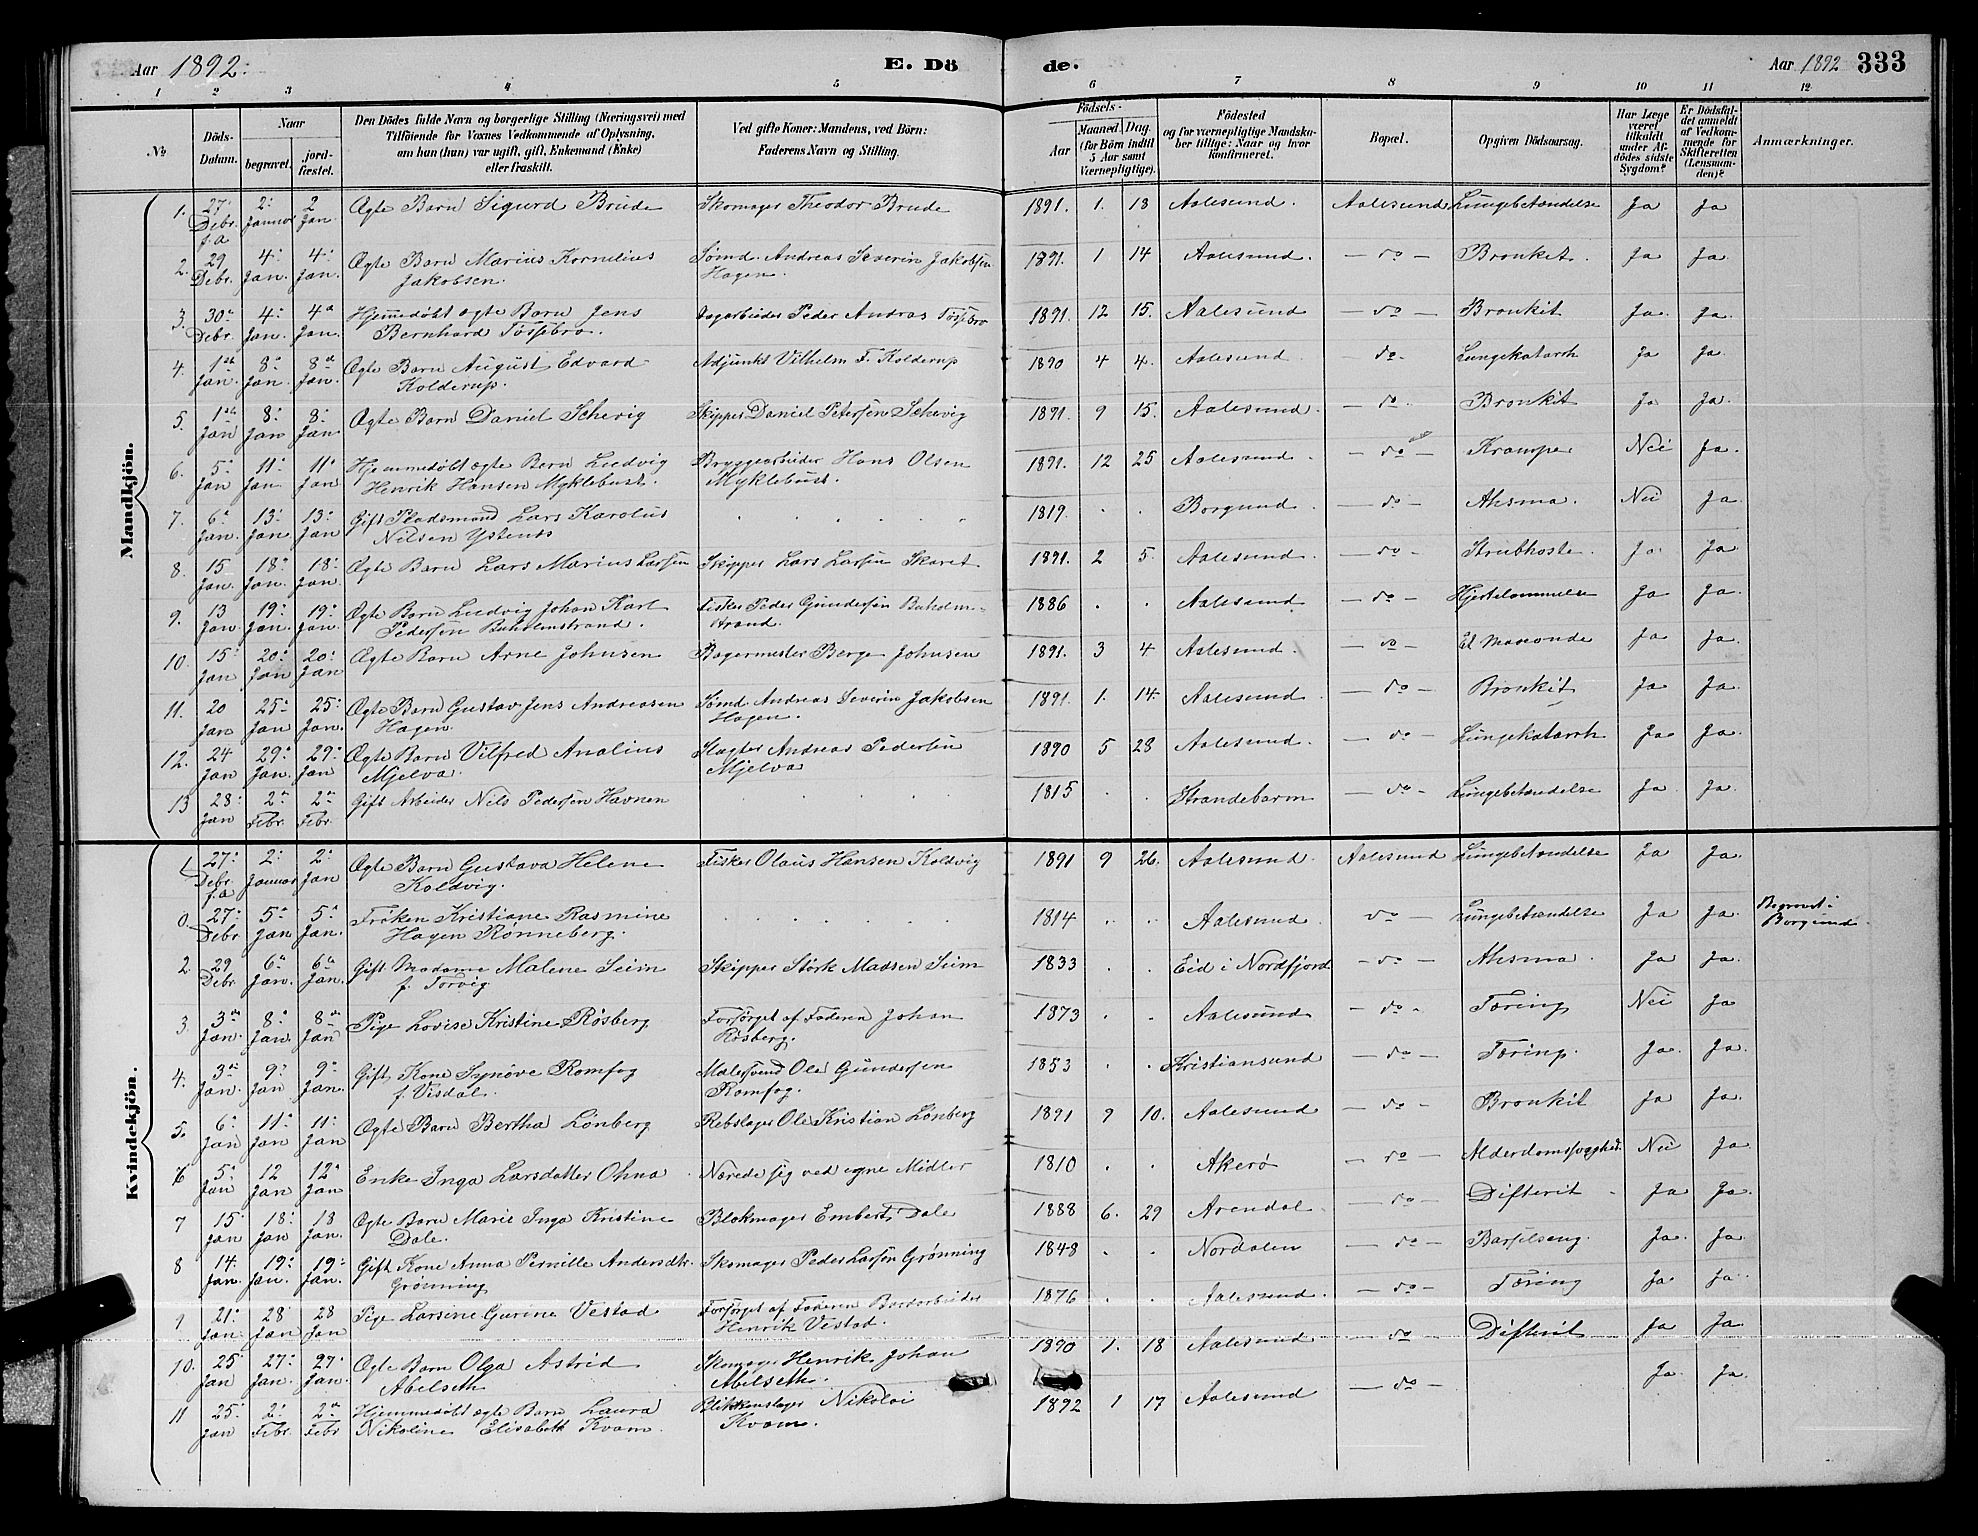 Aar 1892. E. Dö de. Aar 1892 333
1 2 3 4 5 6 7 8 9 10 11 12
No
Döds-Datum.
Naar
begravet.
jord-fæstet.
Den Dödes fulde Navn og borgerlige Stilling (Næringsvei) med
Tilföiende for Voxnes Vedkommende af Oplysning,
om han (hun) var ugift, gift, Enkemand (Enke)
eller fraskilt.
Ved gifte Koner: Mandens, ved Börn:
Faderens Navn og Stilling.
Födsels-
Aar
Maaned. Dag.
(for Börn indtil
5 Aar samt
Værnepligtige).
Födested
og for værnepligtige Mandska-
ber tillige: Naar og hvor
konfirmeret.
Bopæl.
Opgiven Dödsaarsag.
Har Læge
været
tilkaldt
under Af-
dödes sidste
Sygdom?
Er Dödsfal-
det anmeldt
af Vedkom-
mende for
Skifteretten
(Lensman-
den)?
Anmærkninger.
Mandkjön.
1. 27 Debr. f.a 2 Januar 2 Jan Ægte Barn Sigurd Brude Skomager Theodor Brude 1891. 1. 18 Aalesund. Aalesund Lungebetændelse Ja Ja
2. 29 Debr. 4 Jan. 4 Jan. Ægte Barn Marius Kornelius Sømd. Andreas Severin Jakobsen 1891. 1 14 Aalesund. — do — Bronkit. Ja Ja.
Jakobsen Hagen.
3. 30 Debr. 4 Jan. 4 Jan. Hjemmedøbt ægte Barn Jens Dagarbeider Peder Andreas Tøssebro 1891. 12 15. Aalesund — do — Bronkit Ja. Ja.
Bernhard Tøssebro.
4. 1 Jan. 8 Jan. 8 Jan. Ægte Barn August Edvard Adjunkt Vilhelm F. Kolderup 1890 4 4. Aalesund. — do. Lungekatarrh Ja Ja.
Kolderup.
5. 1 Jan 8 Jan 8 Jan Ægte Barn Daniel Schevig Skipper Daniel Petersen Schevig 1891. 9 15. Aalesund. — do. Bronkit Ja Ja.
6. 5 Jan 11 Jan 11 Jan Hjemmedøbt ægte Barn Ludvig Bryggearbeider Hans Olsen 1891. 12 25 Aalesund — do — Krampe Nei Ja.
Henrik Hansen Myklebust. Myklebust.
7. 6 Jan. 13 Jan 13 Jan Gift Pladsmand Lars Karolus 1819. Borgund. — do — Ahsma. Nei Ja
Nilsen Ystenes
8. 15 Jan. 18 Jan. 18 Jan. Ægte Barn Lars Marius Larsen Skipper Lars Larsen Skaret 1891. 2 5. Aalesund. — do — Strubhoste. Ja. Ja
9. 13 Jan 19 Jan. 19 Jan. Ægte Barn Ludvig Johan Karl Fisker Peder Gundersen Buholm- 1886 Aalesund — do — Hjertelammelse Ja Ja.
Pedersen Buholmstrand. strand.
10. 15 Jan 20 Jan 20 Jan Ægte Barn Arne Johnsen Bagermester Berge Johnsen 1891. 3 4 Aalesund. — do — Ja Ja.
11. 20 Jan 25 Jan 25 Jan. Ægte Barn Gustav Jens Andreasen Sømd. Andreas Severin Jakobsen 1891. 1. 14. Aalesund — do — Bronkit Ja Ja.
Hagen. Hagen.
12. 24 Jan 29 Jan. 29 Jan Ægte Barn Vilfred Analius Slagter Andreas Pedersen 1890 5 28 Aalesund. — do — Lungekatarrh Ja. Ja.
Mjelva. Mjelva
13 28 Jan 2 Febr. 2 Febr. Gift Arbeider Nils Pedersen Havnen 1815 Strandebarm — do — Lungebetændelse Ja. Ja.
Kvindekjön.
1. 27 Debr. f.a 2 Januar 2 Jan Ægte Barn Gustava Helene Fisker Olaus Hansen Koldvig 1891 9 26. Aalesund. Aalesund Lungebetændelse Ja Ja.
Koldvig.
0. 27 Debr 5 Jan 5 Jan. Frøken Kristiane Rasmine 1814 Aalesund. do — Lungebetændelse Ja Ja. Begravet i
Hagen Rønneberg. Borgund.
2. 29 Debr. 6 Jan. 6 Jan. Gift Madame Malene Seim Skipper Størk Madsen Seim 1833 Eid i Nordfjord — do — Ahsma. Ja Ja.
f. Torvig
3. 3 Jan. 8 Jan. 8 Jan Pige Lovise Kristine Røsberg Forsørget af Faderen Johan 1873 Aalesund — do — Tæring Nei Ja
Røsberg.
4. 3 Jan. 9 Jan 9 Jan. Gift Kone Synøve Romfog Malersvend Ole Gundersen 1853 Kristiansund — do — Tæring. Ja. Ja.
f. Visdal. Romfog.
5. 6 Jan 11 Jan 11 Jan Ægte Barn Bertha Lönberg Rebslager Ole Kristian Lönberg 1891 9 10. Aalesund — do — Bronkit Ja Ja.
6 5 Jan 12 Jan 12 Jan Enke Inga Larsdatter Ohna Nærede sig ved egne Midler 1810 Akerø — do — Alderdomssvaghed. Nei Ja
7 15 Jan 18 Jan 18 Jan. Ægte Barn Marie Inga Kristine Blokmager Embert Dale 1888 6. 29 Arendal. — do — Difterit Ja Ja.
Dale.
8 14 Jan. 19 Jan. 19 Jan. Gift Kone Anna Pernille Andersdtr. Skomager Peder Larsen Grönning 1848 Nordalen — do — Barselseng. Ja. Ja.
Grönning
9 21 Jan. 28 Jan 28 Jan Pige Larsine Gurine Vestad Forsørget af Faderen 1876 Aalesund. — do — Tæring Ja. Ja.
Henrik Vestad.
10. 25 Jan 27 Jan. 27 Jan. Ægte Barn Olga Astrid Skomager Henrik Johan 1890 1. 18 Aalesund. — do — Difterit Ja Ja
Abelseth Abelseth.
11 25 Jan 2 Febr. 2 Febr Hjemmedøbt ægte Barn Laura Blikkenslager Nikolai 1892 1 17 Aalesund — do — Ja. Ja.
Nikoline Elisabeth Kvam. Kvam.